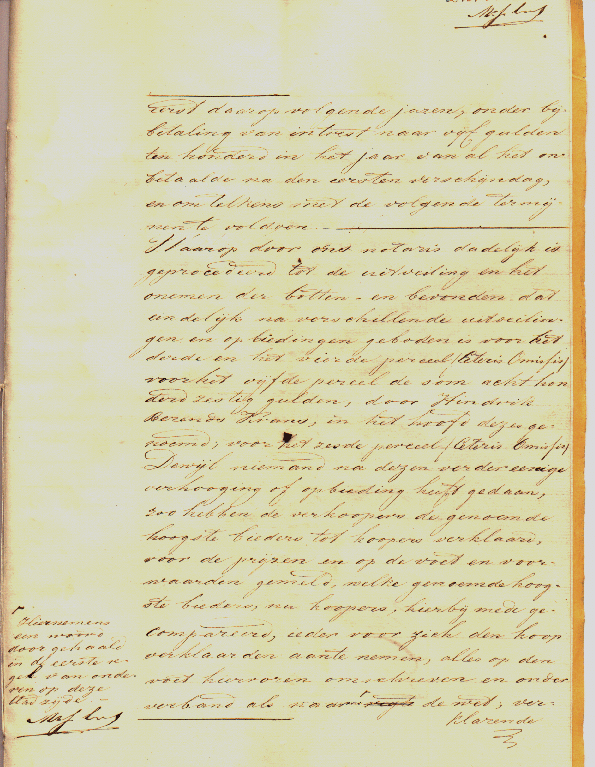 eerst daarop volgende jaren, onder bij-
betaling van intrest naar vijf gulden
ten honderd in het jaar van al het on-
betaalde na den eersten verschijndag,
en om telkens met de volgende termij-
nen te voldoen.
Waarop door ons notaris dadelijk is
geprocedeerd tot de uitveiling en het
innemen der botten - en bevonden dat
eindelijk na verschillende uitveilin-
gen en opbiedingen geboden is voor het
derde en het vierde perceel (Ceteris Omissis)
voor het vijfde perceel de som acht hon
derd zestig gulden, door Hendrik
Berends Krans, in het hoofd dezes ge-
noemd, voor het zesde perceel (Ceteris Omissis)
Dewijl niemand na dezen verder eenige
verhooging of opbieding heeft gedaan,
zoo hebben de verkoopers de genoemde
hoogste bieders tot koopers verklaard,
voor de prijzen en op de voet en voor-
waarden gemeld, welke genoemde hoog-
ste bieders, nu koopers, hierbij mede ge-
compareerd, ieder voor zich den koop
verklaarden aante nemen, alles op den
voet hiervoren omschreven en onder
verband als naar de wet, ver-
klarende
Hiernevens
een woord
doorgehaald
in de eerste re-
gel van onde-
ren op deze
bladzijde